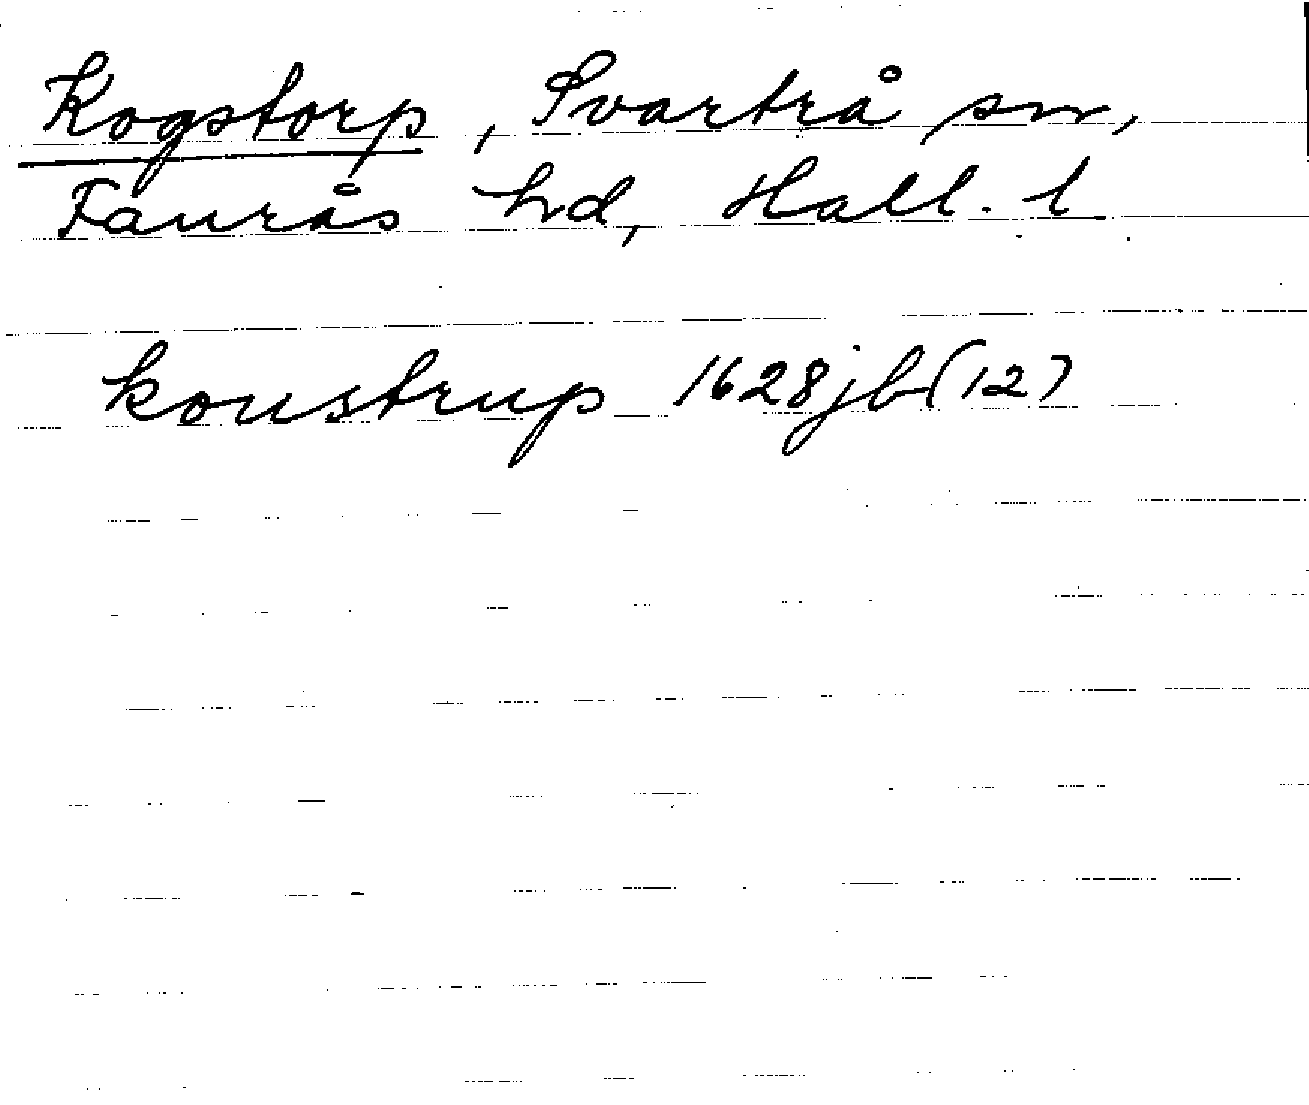 Kogstorp, Svartrå sn,
Faurås hd, Hall. l
koustrup 1628 jb (12)